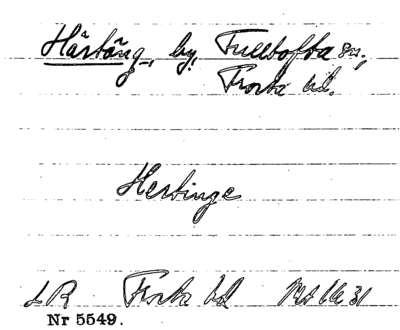 Härtäng, by, Fulltofta sn;
Frosta hd.
Hertinge
LR Frosta hd
Nr 5549.